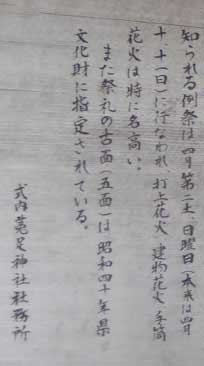 知られる例祭は四月第二土、日曜日(本来は四月
十、十一日)に行なわれ、打上花火、建物花火、手筒
花火は特に名高い。
また祭礼の古面(五面)は昭和四十年県
文化財に指定されている。
式内菟足神社社務所